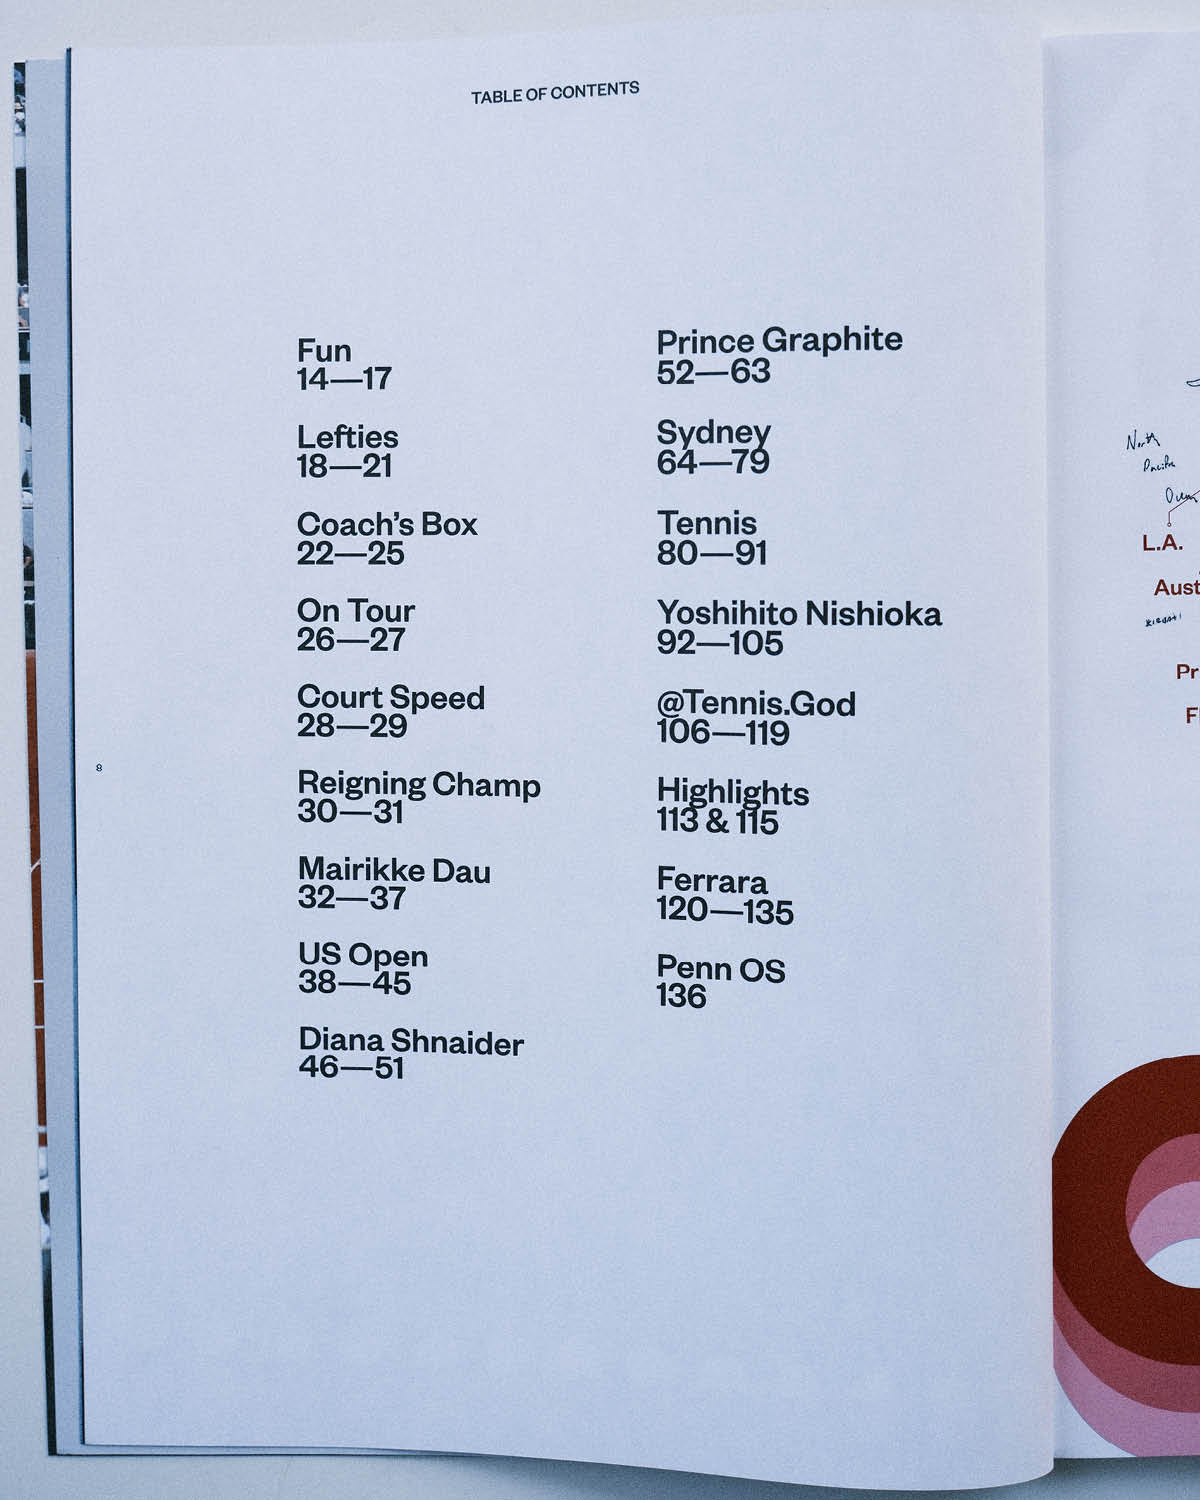 TABLE OF CONTENTS
Fun
14—17
Lefties
18—21
Coach's Box
22—25
On Tour
26—27
Court Speed
28—29
Reigning Champ
30—31
Mairikke Dau
32—37
US Open
38—45
Diana Shnaider
46—51
Prince Graphite
52—63
Sydney
64—79
Tennis
80—91
Yoshihito Nishioka
92—105
@Tennis.God
106—119
Highlights
113 & 115
Ferrara
120—135
Penn OS
136
8
North
L.A.
Aust
Pr